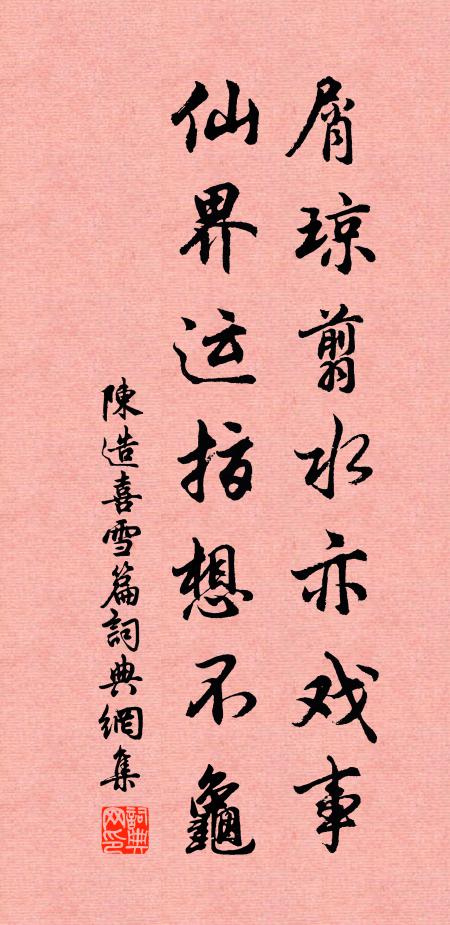 屑琼翦水亦戏事
仙界运指想不龜
陳造喜雪篇詞典網集
詞典網印